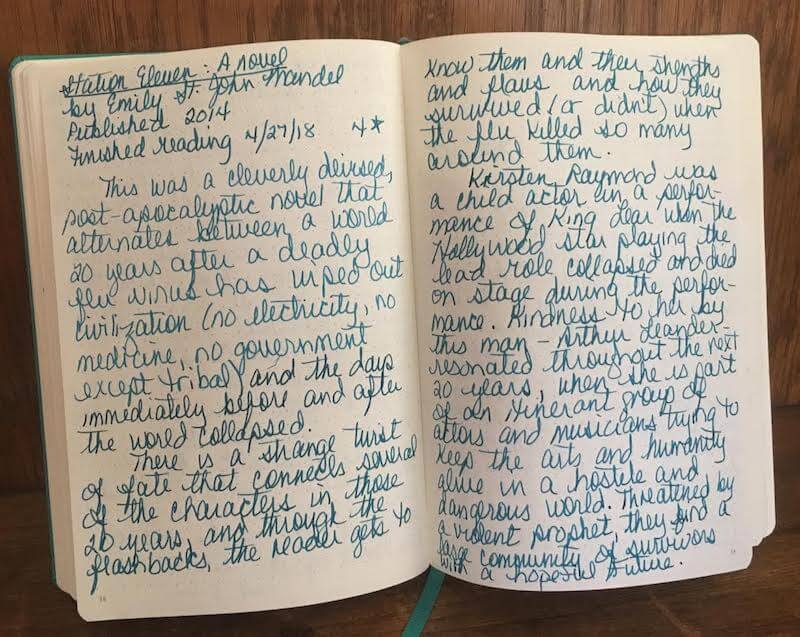 Station Eleven: A novel
by Emily St. John Mandel
Published 2014
Finished reading 4/27/18 4★
This was a cleverly devised,
post-apocalyptic novel that
alternates between a world
20 years after a deadly
flu virus has wiped out
civilization (no electricity, no
medicine, no government
except tribal) and the days
immediately before and after
the world collapsed.
There is a strange twist
of fate that connects several
of the characters in those
20 years, and through the
flashbacks, the reader gets to
know them and they strengths
and flaws and how they
survived (or didn't) when
the flu killed so many
around them.
Kirsten Raymond was
a child actor in a perfor-
mance of King Lear when the
Hollywood star playing the
lead role collapsed and died
on stage during the perfor-
mance. Kindness to her by
this man - Arthur Leander -
resonated throughout the next
20 years, when she is part
of an itinerant group of
actors and musicians trying to
keep the arts and humanity
alive in a hostile and
dangerous world. Threatened by
a violent prophet, they find a
large community of survivors
with a hopeful future.